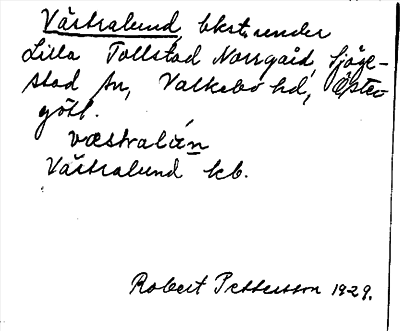 Västralund, bkst. under
Lilla Tollstad Norrgård, Sjöge-
stad sn, Valkebo hd, Öster-
götl.
væstralún
Västralund kb.
Robert Pettersson 1929.